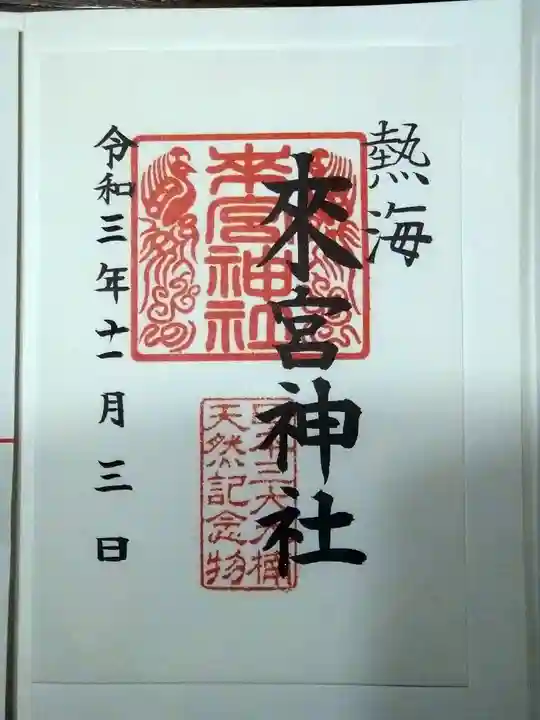 熱海
來宮神社
令和三年十一月三日
来宮神社
日本三大老樟
天然記念物